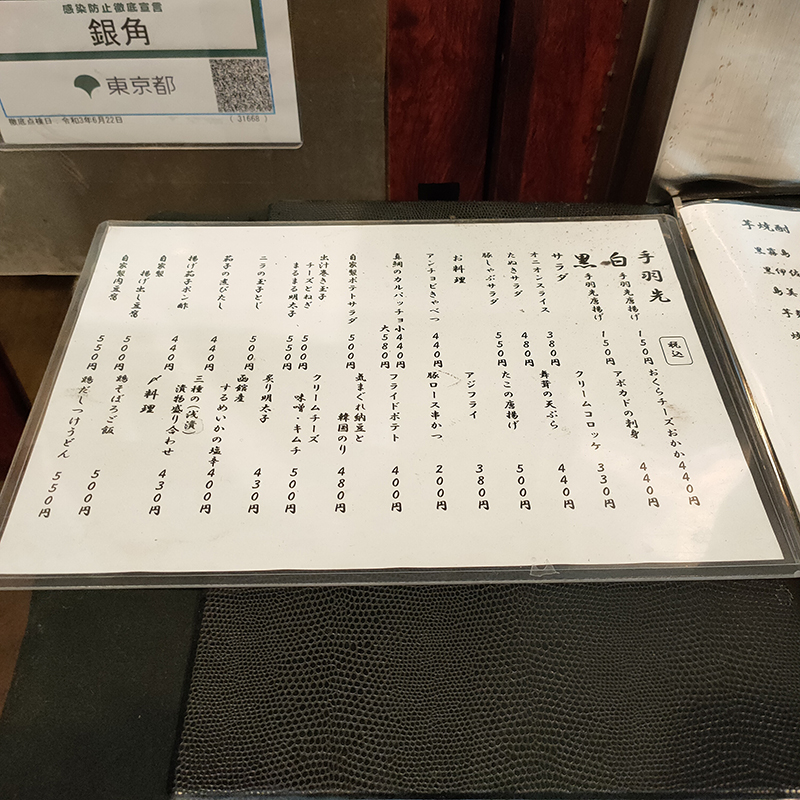 感染防止徹底宣言
銀角
東京都
徹底点検日 令和3年6月22日
( 31668 )
手羽先
税込
白 手羽唐揚げ 150円
黒 手羽先唐揚げ 150円
サラダ
オニオンスライス 380円
たぬきサラダ 480円
豚しゃぶサラダ 550円
お料理
アンチョビきゃべつ 440円
真鯛のカルパッチョ 小440円
大580円
自家製ポテトサラダ 500円
出汁巻き玉子
チーズとねぎ 500円
まるまる明太子 550円
ニラの玉子とじ 500円
茄子の煮びたし 440円
揚げ茄子ポン酢 440円
自家製
揚げ出し豆腐 500円
自家製肉豆腐 550円
おくらチーズおかか 440円
アボカドの刺身 440円
クリームコロッケ 330円
舞茸の天ぷら 440円
たこの唐揚げ 500円
アジフライ 380円
豚ロース串かつ 200円
フライドポテト 400円
気まぐれ納豆と
韓国のり 480円
クリームチーズ
味噌・キムチ 500円
炙り明太子 430円
函館産
するめいかの塩辛 400円
三種の(浅漬)
漬物盛り合わせ 430円
〆料理
鶏そぼろご飯 500円
鶏だしつけうどん 550円
芋焼酎
黒霧島
黒伊佐
島美